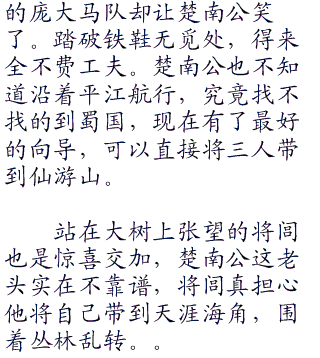 的庞大马队却让楚南公笑
了。踏破铁鞋无觅处，得来
全不费工夫。楚南公也不知
道沿着平江航行，究竟找不
找的到蜀国，现在有了最好
的向导，可以直接将三人带
到仙游山。
站在大树上张望的将闾
也是惊喜交加，楚南公这老
头实在不靠谱，将闾真担心
他将自己带到天涯海角，围
着丛林乱转。。